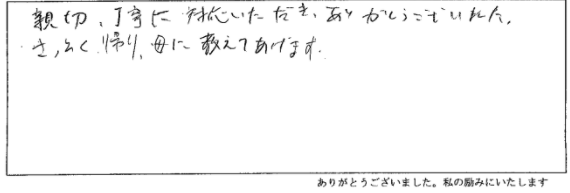 親切、丁寧に対応いただき、ありがとうございました。
さっそく帰り、母に教えてあげます。
ありがとうございました。私の励みにいたします